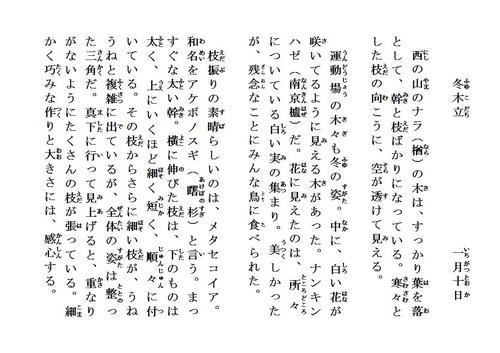 冬木立　一月十日
西の山のナラ（楢）の木は、すっかり葉を落
として、幹と枝ばかりになっている。寒々と
した枝の向こうに、空が透けて見える。
運動場の木々も冬の姿。中に、白い花が
咲いてるように見える木があった。ナンキン
ハゼ（南京櫨）だ。花に見えたのは、所々
についている白い実の集まり。美しかった
が、残念なことにみんな鳥に食べられた。
枝振りの素晴らしいのは、メタセコイア。
和名をアケボノスギ（曙杉）と言う。まっ
すぐな太い幹。横に伸びた枝は、下のものは
太く、上にいくほど細く短く、順々に付
いている。その枝からさらに細い枝が、うね
うねと複雑に出ているが、全体の姿は整っ
た三角だ。真下に行って見上げると、重なり
がないようにたくさんの枝が張っている。細
かく巧みな作りと大きさには、感心する。